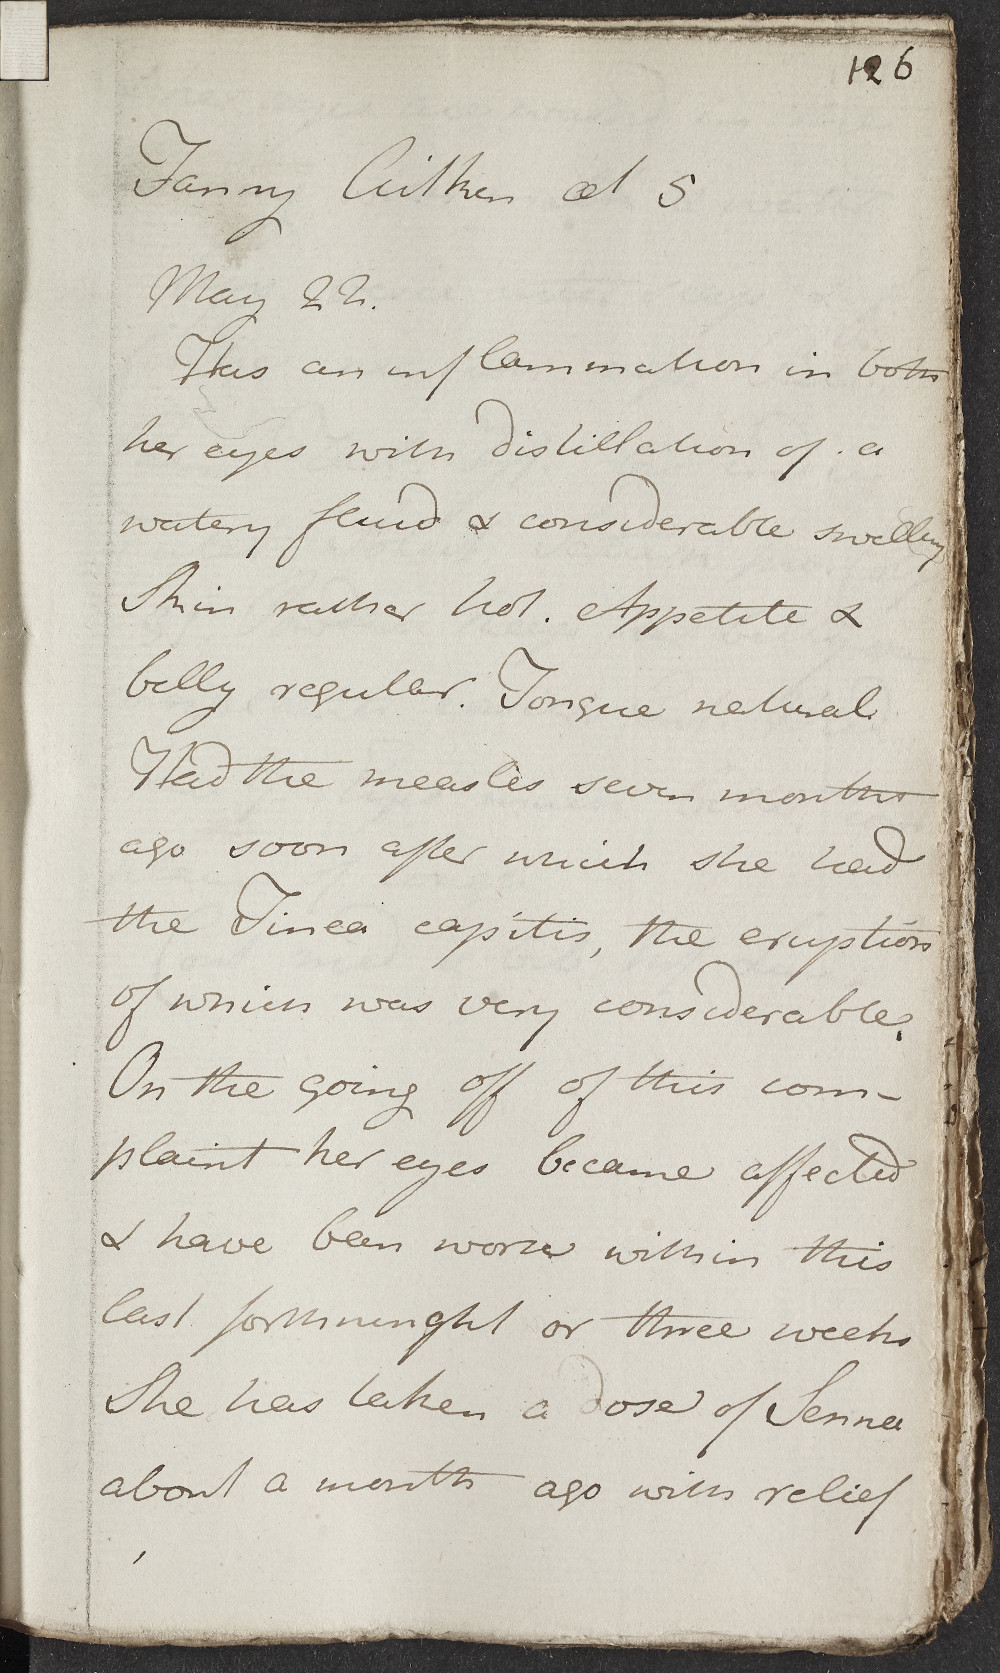 126
Fanny Aitken æt 5
May 22.
Has an inflammation in both
her eyes with distillation of a
watery fluid & considerable swelling
Skin rather hot. Appetite &
belly regular. Tongue natural
Had the measles seven months
ago soon after which she had
the Tinea capitis, the eruption
of which was very considerable.
On the going off of this com-
plaint her eyes became affected
& have been worse within this
last forthnunght or three weeks
She has taken a dose of Senna
about a month ago with relief